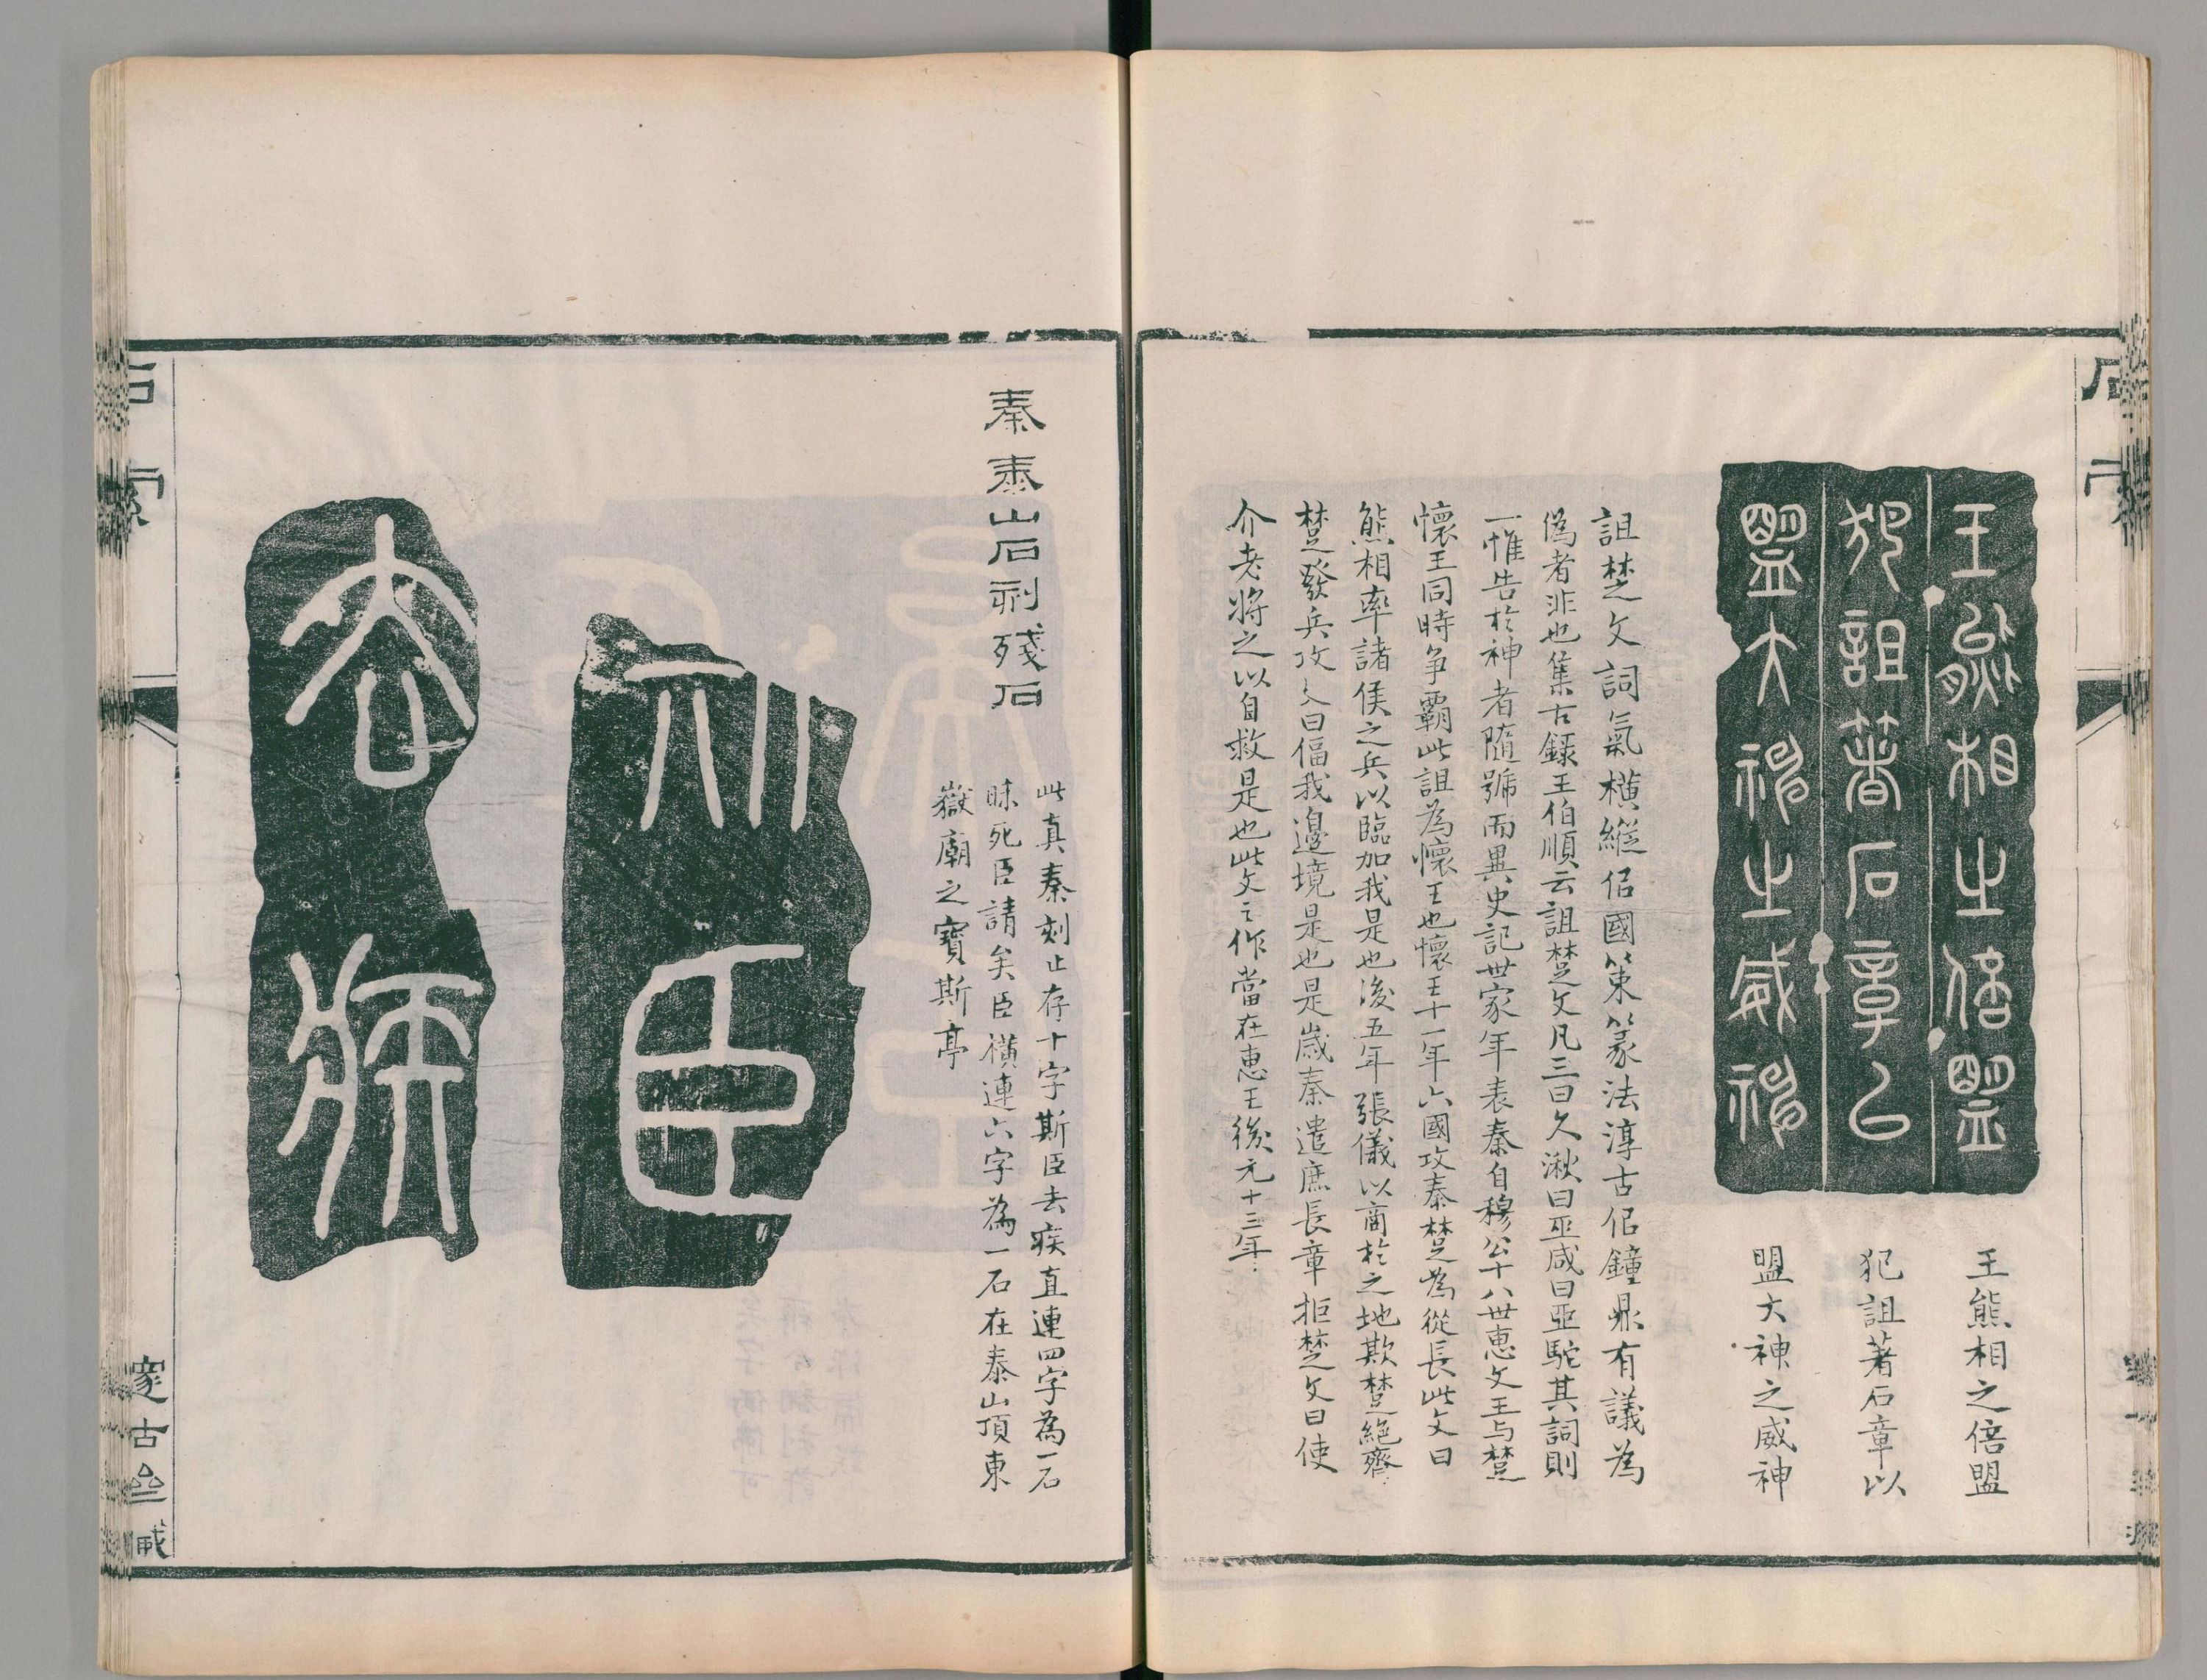 王熊相之倍盟
犯詛著石章以
盟大神之威神
王熊相之倍盟
犯詛著石章以
盟大神之威神
詛楚文詞氣橫縱侣國策篆法淳古侣鐘鼎有議為
偽者非也集古録王伯順云詛楚文凡三曰久湫曰巫咸曰亞駝其詞則
一惟告於神者隨號而異史記世家年表秦自穆公十八世惠文王与楚
懷王同時爭霸此詛為懷王也懷王十一年六國攻秦楚為從長此文曰
熊相率諸侯之兵以臨加我是也後五年張儀以商於之地欺楚絕齊
楚發兵攻文曰偪我邊境是也是歲秦遣庶長章拒楚文曰使
介老將之以自救是也此文之作當在惠王後元十三年
秦泰山石刻殘石
此真秦刻止存十字斯臣去疾直連四字為一石
昧死臣請矣臣橫連六字為一石在泰山頂東
嶽廟之寶斯亭
斯臣
去疾
石索